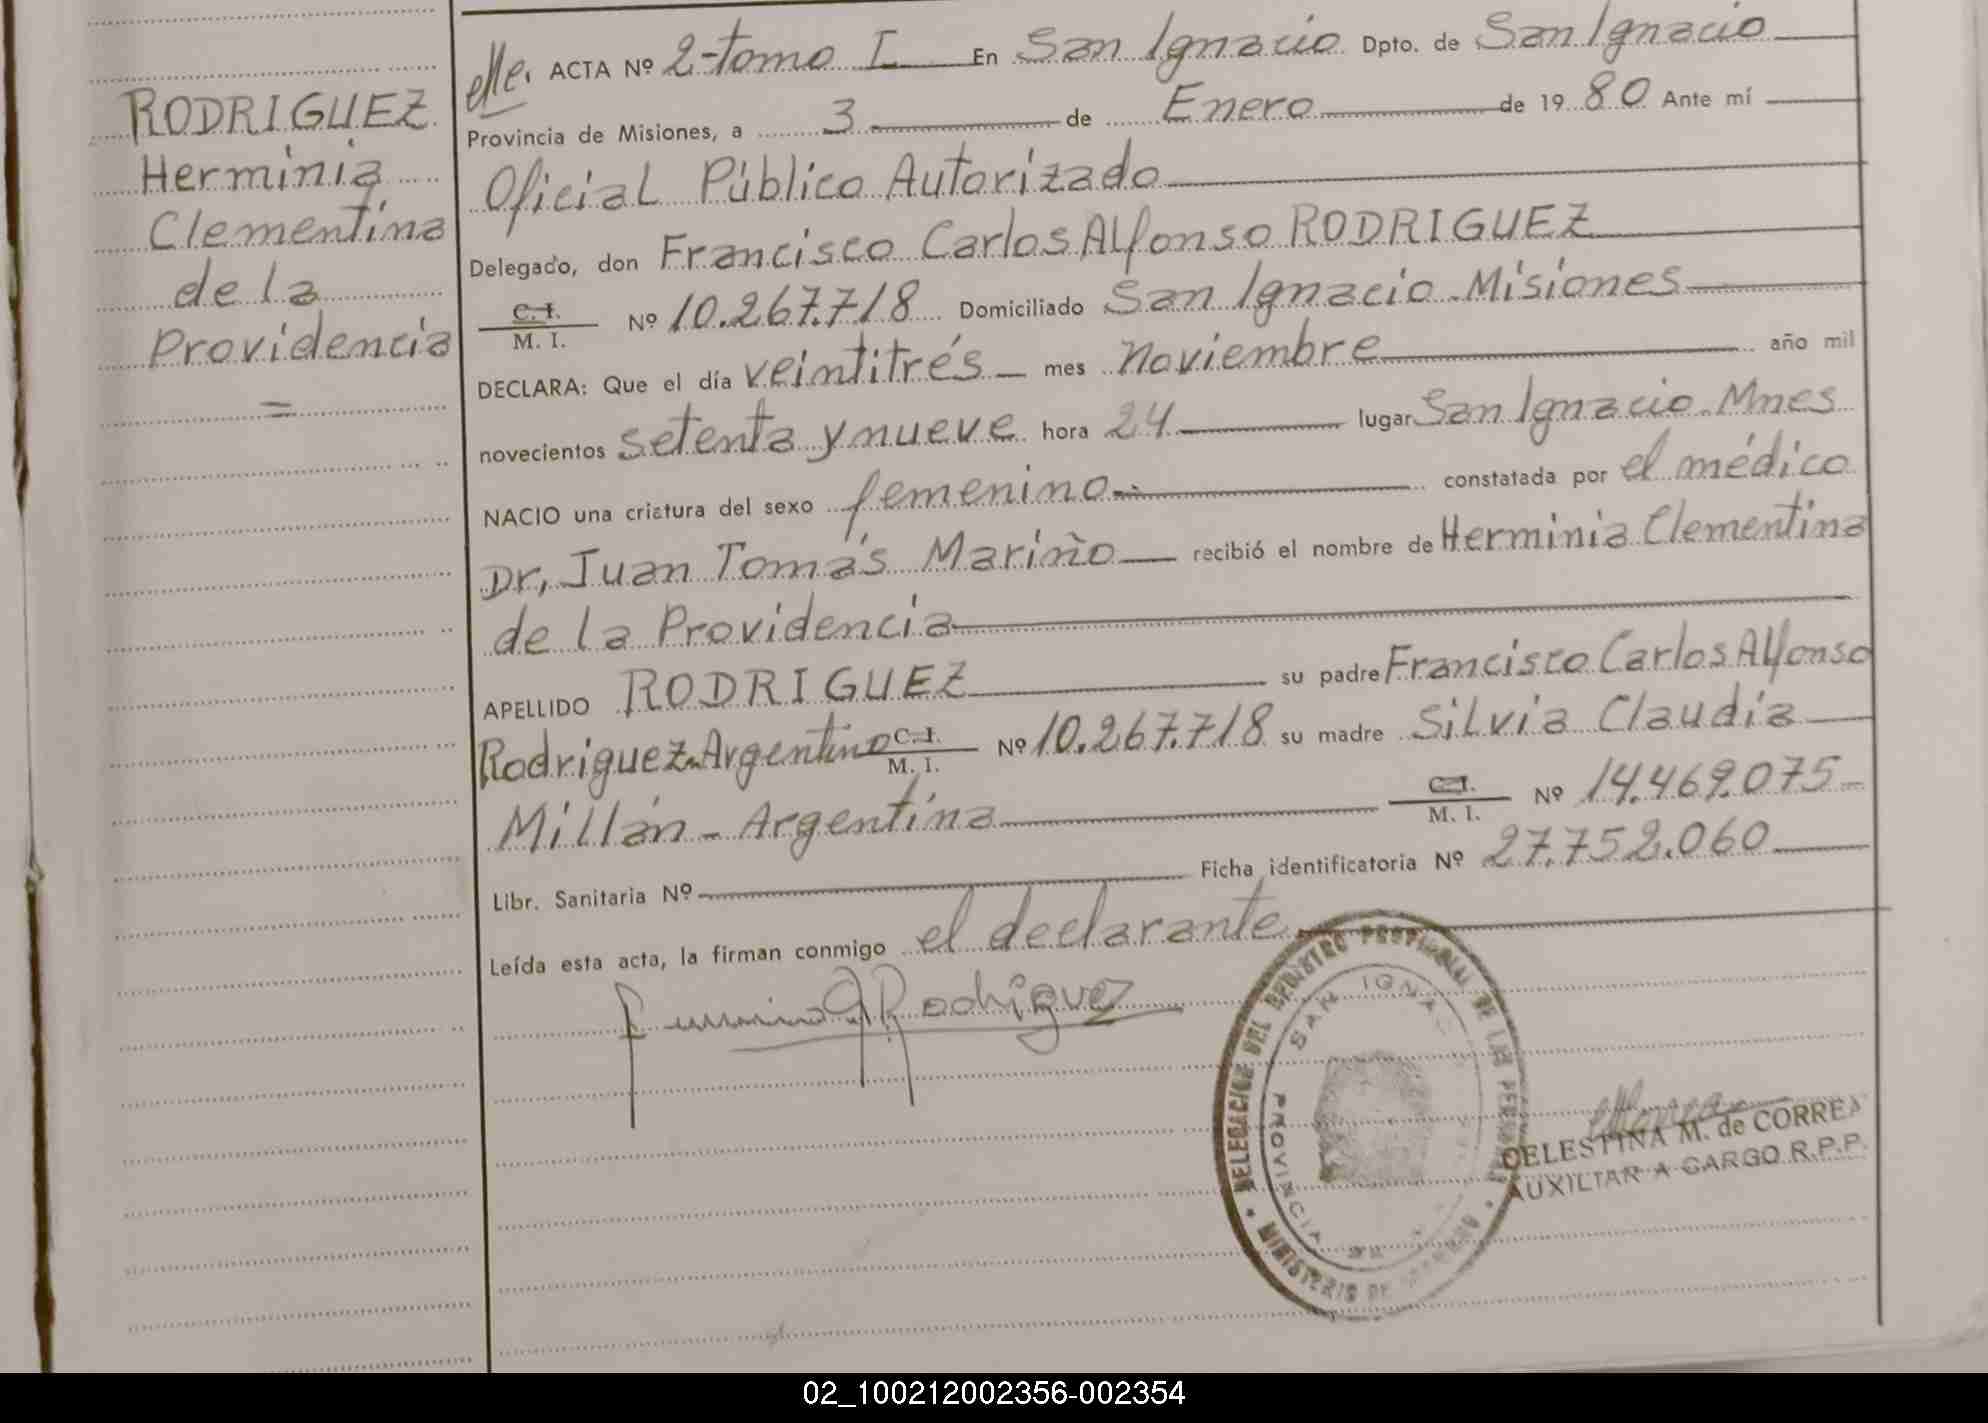 RODRIGUEZ
Herminia
Clementina
de la
Providencia
=
ACTA Nº 2-tomo I En San Ignacio Dpto. de San Ignacio
Provincia de Misiones, a 3 de Enero de 1980 Ante mí
Oficial Público Autorizado
Delegado, don Francisco Carlos Alfonso RODRIGUEZ
C. I.
M. I. Nº 10.267.718 Domiciliado San Ignacio - Misiones
DECLARA: Que el día veintitrés mes noviembre año mil
novecientos setenta y nueve hora 24 lugar San Ignacio - Mnes
NACIO una criatura del sexo femenino constatada por el médico
Dr, Juan Tomás Mariño recibió el nombre de Herminia Clementina
de la Providencia
APELLIDO RODRIGUEZ su padre Francisco Carlos Alfonso
Rodriguez - Argentino C. I.
M. I. Nº 10.267.718 su madre Silvia Claudia
Millán - Argentina C. I.
M. I. Nº 14.469.075
Libr. Sanitaria Nº Ficha identificatoria Nº 27.752.060
Leída esta acta, la firman conmigo el declarante
Rodriguez
DELEGACION DEL REGISTRO PROVINCIAL DE LAS PERSONAS
SAN IGNACIO
PROVINCIA
MINISTERIO DE GOBIERNO
CELESTINA M. de CORREA
AUXILIAR A CARGO R.P.P.
02_100212002356-002354